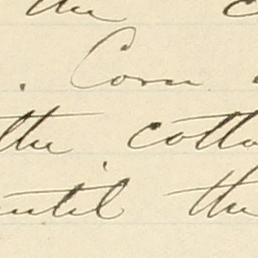 the c
. Corn
the cotto
until the